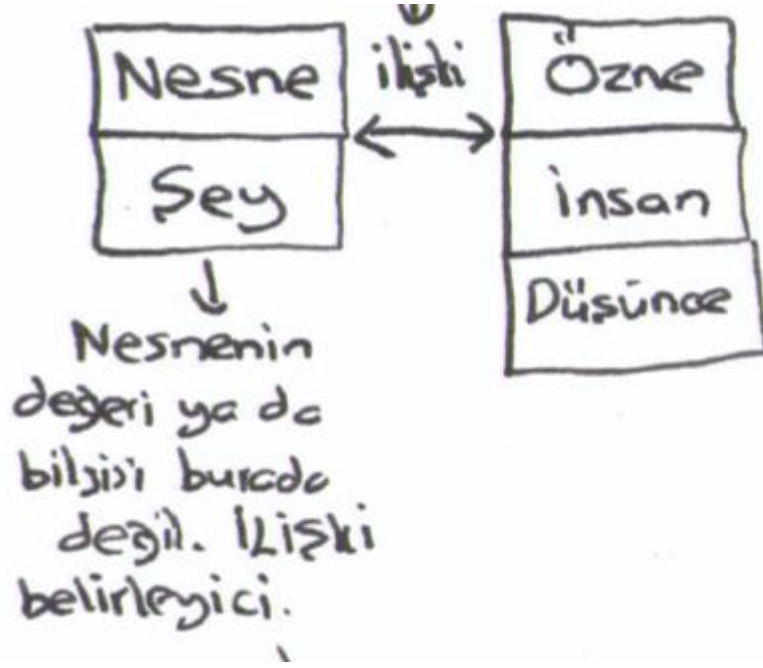 Nesne
Şey
ilişki
Özne
İnsan
Düşünce
Nesnenin
değeri ya da
bilgisi burada
değil. İlişki
belirleyici.